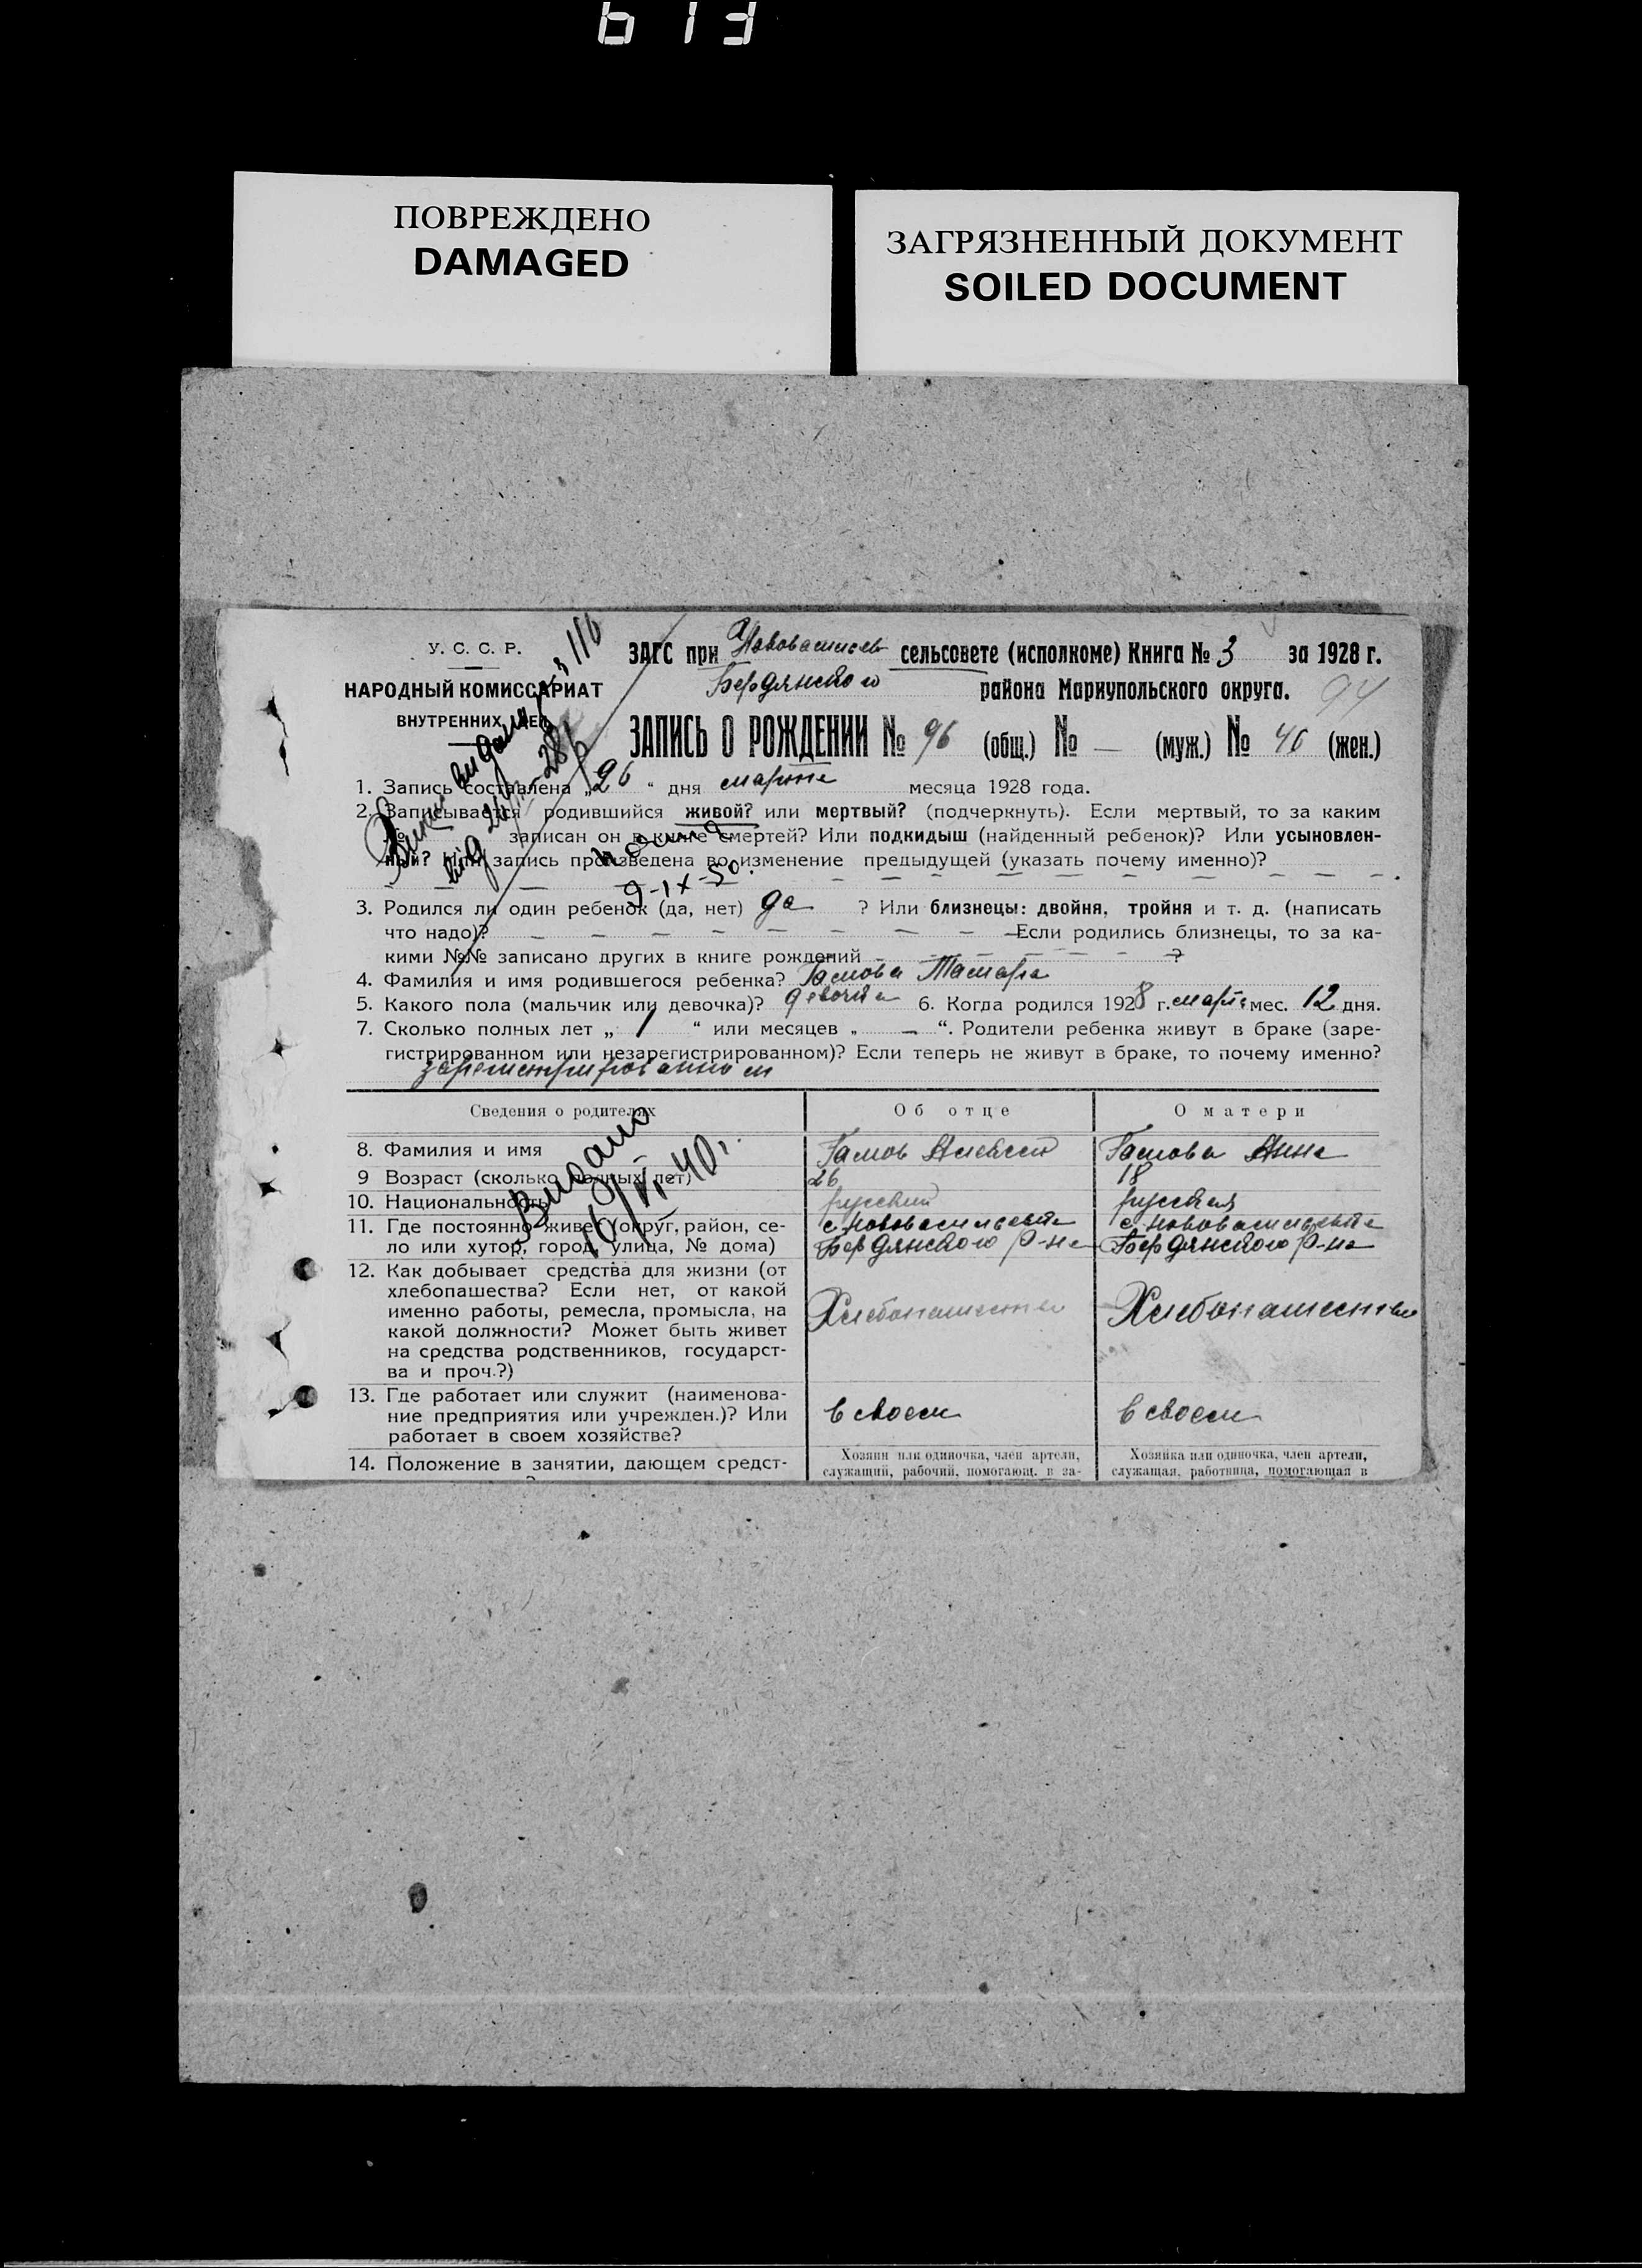 613
ПОВРЕЖДЕНО
DAMAGED
ЗАГРЯЗНЕННЫЙ ДОКУМЕНТ
SOILED DOCUMENT
У. С. С. Р.
НАРОДНЫЙ КОМИССАРИАТ
ВНУТРЕННИХ ДЕЛ
ЗАГС при Нововасильев сельсовете (исполкоме) Книга № 3 за 1928 г.
Бердянского района Мариупольского округа.
94
ЗАПИСЬ О РОЖДЕНИИ № 96 (общ.) № — (муж.) № 46 (жен.)
1. Запись составлена „26“ дня марта месяца 1928 года.
2. Записывается родившийся живой? или мертвый? (подчеркнуть). Если мертвый, то за каким
№ записан он в книге смертей? Или подкидыш (найденный ребенок)? Или усыновлен-
ный? Или запись произведена во изменение предыдущей (указать почему именно)?
9-IX-50.
3. Родился ли один ребенок (да, нет) да ? Или близнецы: двойня, тройня и т. д. (написать
что надо)? — — — — — — — — Если родились близнецы, то за ка-
кими №№ записано других в книге рождений — — — — — — ?
4. Фамилия и имя родившегося ребенка? Гамова Тамара
5. Какого пола (мальчик или девочка)? девочка 6. Когда родился 1928 г. март мес. 12 дня.
7. Сколько полных лет „ / “ или месяцев „ — “. Родители ребенка живут в браке (заре-
гистрированном или незарегистрированном)? Если теперь не живут в браке, то почему именно?
зарегистрированном
Сведения о родителях Об отце О матери
8. Фамилия и имя Гамов Алексей Гамова Анна
9 Возраст (сколько полных лет) 26 18
10. Национальность русский русская
11. Где постоянно живет (округ, район, се- с. Нововасильевка с. Нововасильевка
ло или хутор, город, улица, № дома) Бердянского р-на Бердянского р-на
Видано
16/VI-40 г.
12. Как добывает средства для жизни (от
хлебопашества? Если нет, от какой
именно работы, ремесла, промысла, на Хлебопашество Хлебопашество
какой должности? Может быть живет
на средства родственников, государст-
ва и проч.?)
13. Где работает или служит (наименова-
ние предприятия или учрежден.)? Или в своем в своем
работает в своем хозяйстве?
14. Положение в занятии, дающем средст-
Хозяин или одиночка, член артели, Хозяйка или одиночка, член артели,
служащий, рабочий, помогающ. в за- служащая, работница, помогающая в